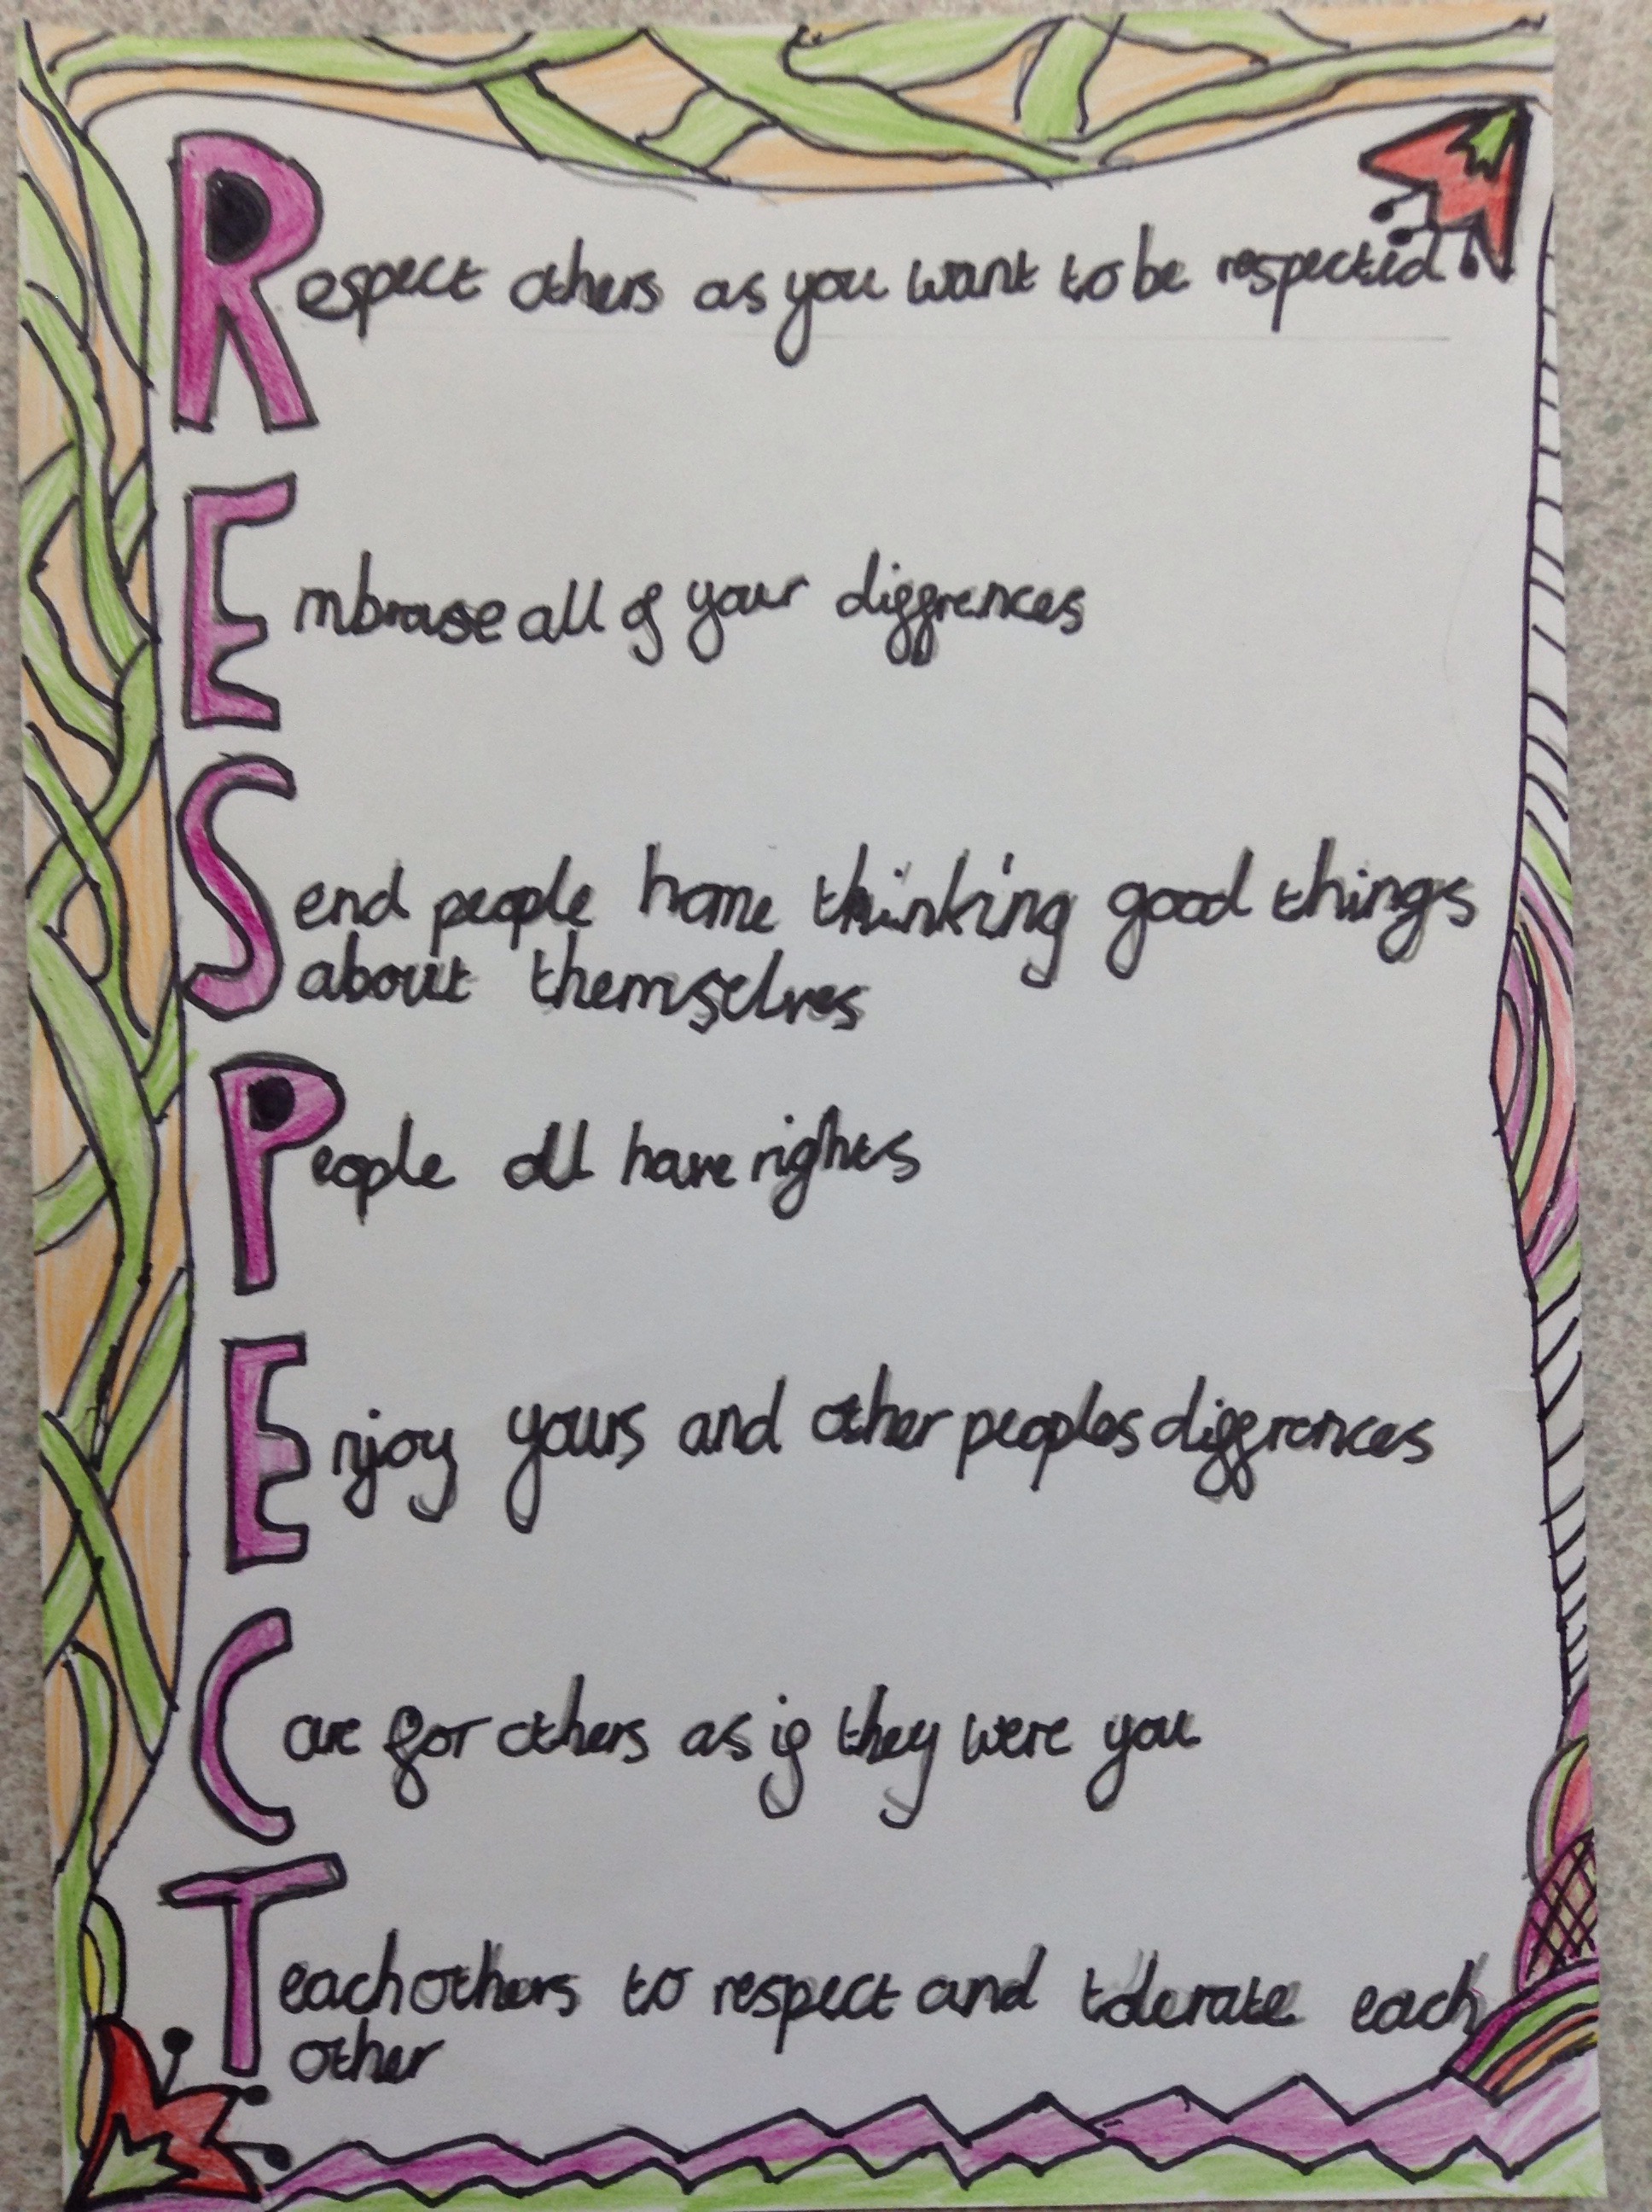 Respect others as you want to be respected
Embrase all of your diffrences
Send people home thinking good things
about themselves
People all have rights
Enjoy yours and other peoples diffrences
Care for others as if they were you
Teach others to respect and tolerate each
other